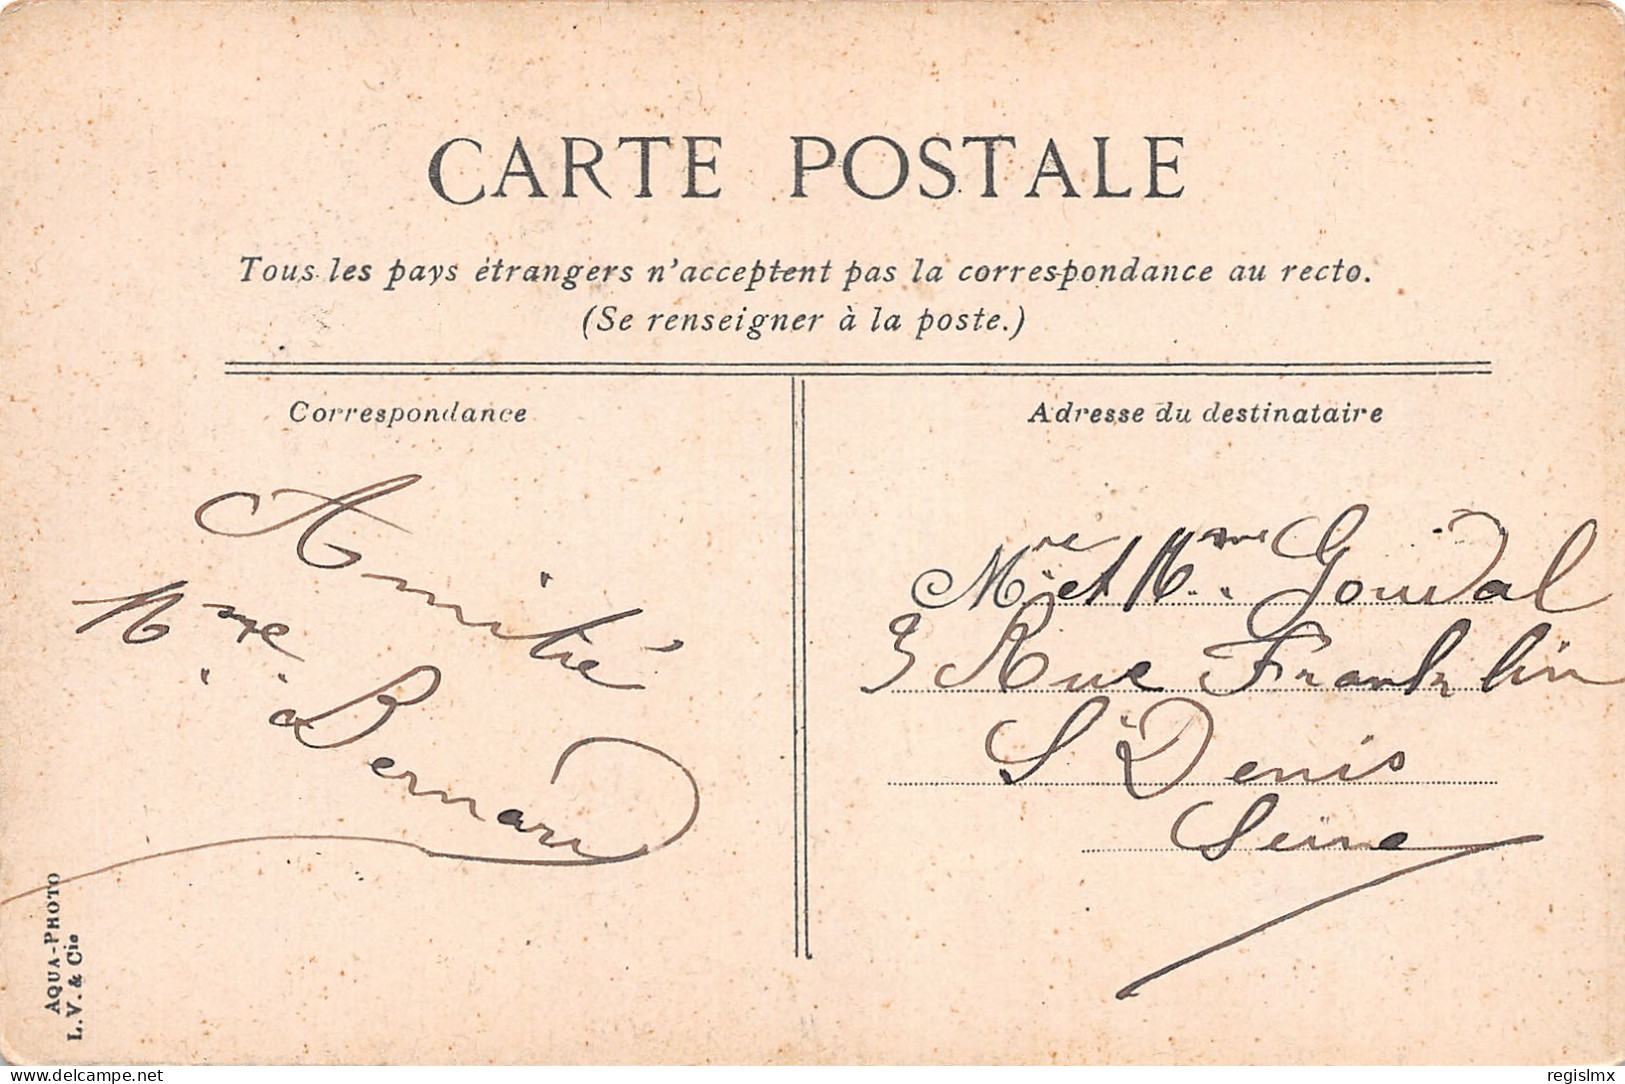 CARTE POSTALE
Tous les pays étrangers n'acceptent pas la correspondance au recto.
(Se renseigner à la poste.)
Correspondance
Amitié
Mme Bernard
AQUA-PHOTO
L. V. & Cie
Adresse du destinataire
Mre et Mme Goudal
3 Rue Franklin
St Denis
Seine
www.delcampe.net
regislmx